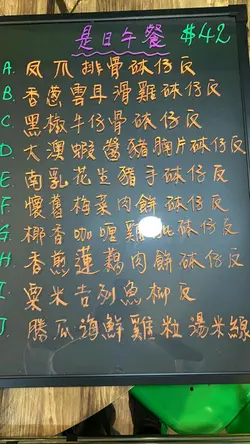 是日午餐 $42
A. 鳳爪排骨砵仔反
B. 香蔥雲耳滑雞砵仔反
C. 黑椒牛仔骨砵仔反
D. 大澳蝦醬豬胸片砵仔反
E. 南乳花生豬手砵仔反
F. 懷舊梅菜肉餅砵仔反
G. 椰香咖喱雞砵仔反
H. 香煎蓮藕肉餅砵仔反
I. 粟米吉列魚柳反
J. 勝瓜海鮮雞粒湯米線